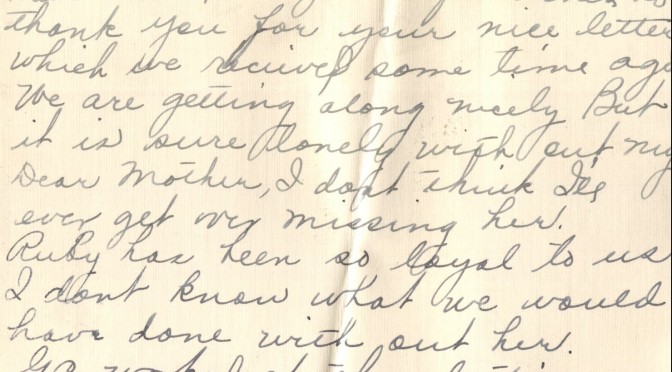 thank you for your nice letter
which we recived some time ago
We are getting along nicely But
it is sure lonely with out my
Dear Mother, I dont think I'll
ever get over missing her.
Ruby has been so loyal to us
I dont know what we would
have done with out her.